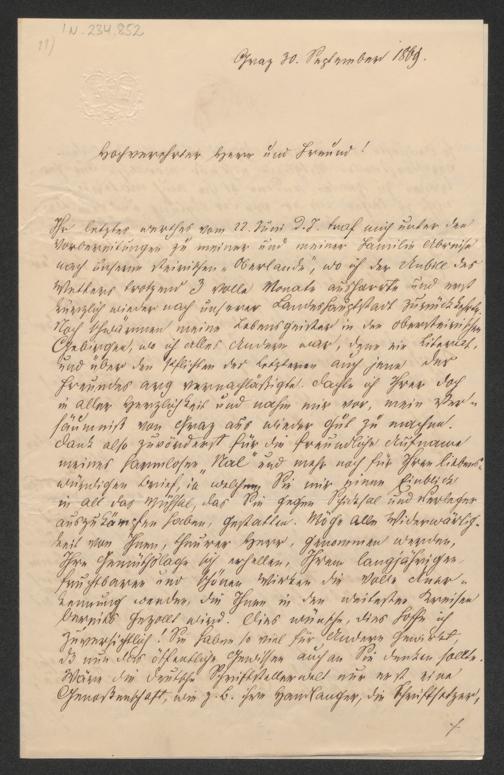 IN. 234.852
11)
Graz 30. September 1869.
Hochverehrter Herr und Freund!
Ihr letztes werthes vom 22. Juni d. J. traf mich unter den
Vorbereitungen zu meiner und meiner Familie Abreise
nach unserm steirischen „Oberlande", wo ich der Unbill des
Wetters trotzend 3 volle Monate ausharrte und erst
kürzlich wieder nach unserer Landeshauptstadt zurückkehrte.
Noch schwärmen meine Lebensgeister in den obersteirischen
Gebirgen, wo ich alles Andere war, denn ein Literat,
und über den Pflichten des letzteren auch jene des
Freundes arg vernachlässigte. Dachte ich Ihrer doch
in aller Herzlichkeit und nahm mir vor, mein Ver-
säumniß von Graz aus wieder gut zu machen.
Dank also zuvörderst für die freundliche Aufname
meines harmlosen und mehr noch für Ihren liebens-
würdigen Brief, in welchem Sie mir einen Einblick
in all das Mühsal, das Sie gegen Schicksal und Verleger
auszukämpfen haben, gestatten. Möge alle Widerwärtig-
keit von Ihnen, theurer Herr, genommen werden,
Ihre Gemüthslage sich erhellen, Ihrem langjährigen
fruchtbaren und schönen Wirken die volle Aner-
kennung werden, die Ihnen in den weitesten Kreisen
bereits gezollt wird. Dies wünsche, dies hoffe ich
zuversichtlich! Sie haben so viel für Andere gewirkt,
daß nun das öffentliche Gewissen auch an Sie denken sollte.
Wäre die deutsche Schriftstellerwelt nur erst eine
Genossenschaft, wie z. B. ihre Handlanger, die Schriftsetzer,